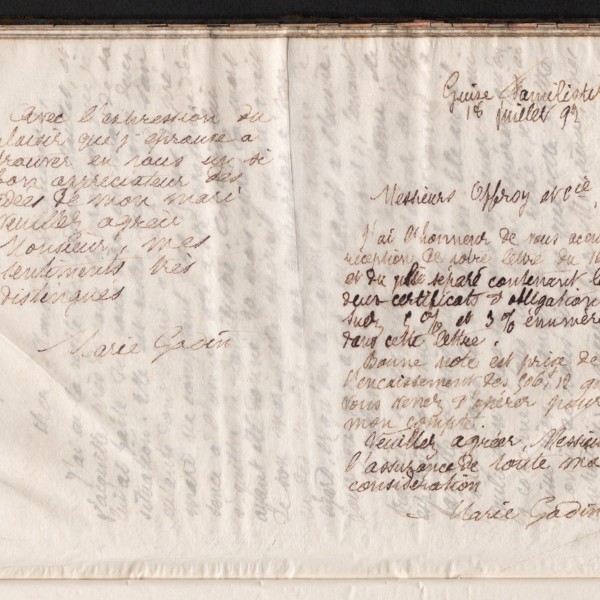 Avec l'expression du
plaisir que j'éprouve à
trouver en vous un si
bon appréciateur des
idées de mon mari
veuillez agréer
Monsieur, mes
sentiments très
distingués
Marie Godin
Guise Familistère
18 juillet 92
Messieurs Offroy et Cie,
J'ai l'honneur de vous accu
réception de votre lettre du
et du pli séparé contenant le
deux certificats d'obligation
Suez 5 % et 3 % énumér
dans cette lettre.
Bonne note est prise de
l'encaissement des 506,12 q
vous venez d'opérer pour
mon compte.
Veuillez agréer, Messieu
l'assurance de toute ma
considération
Marie Godin